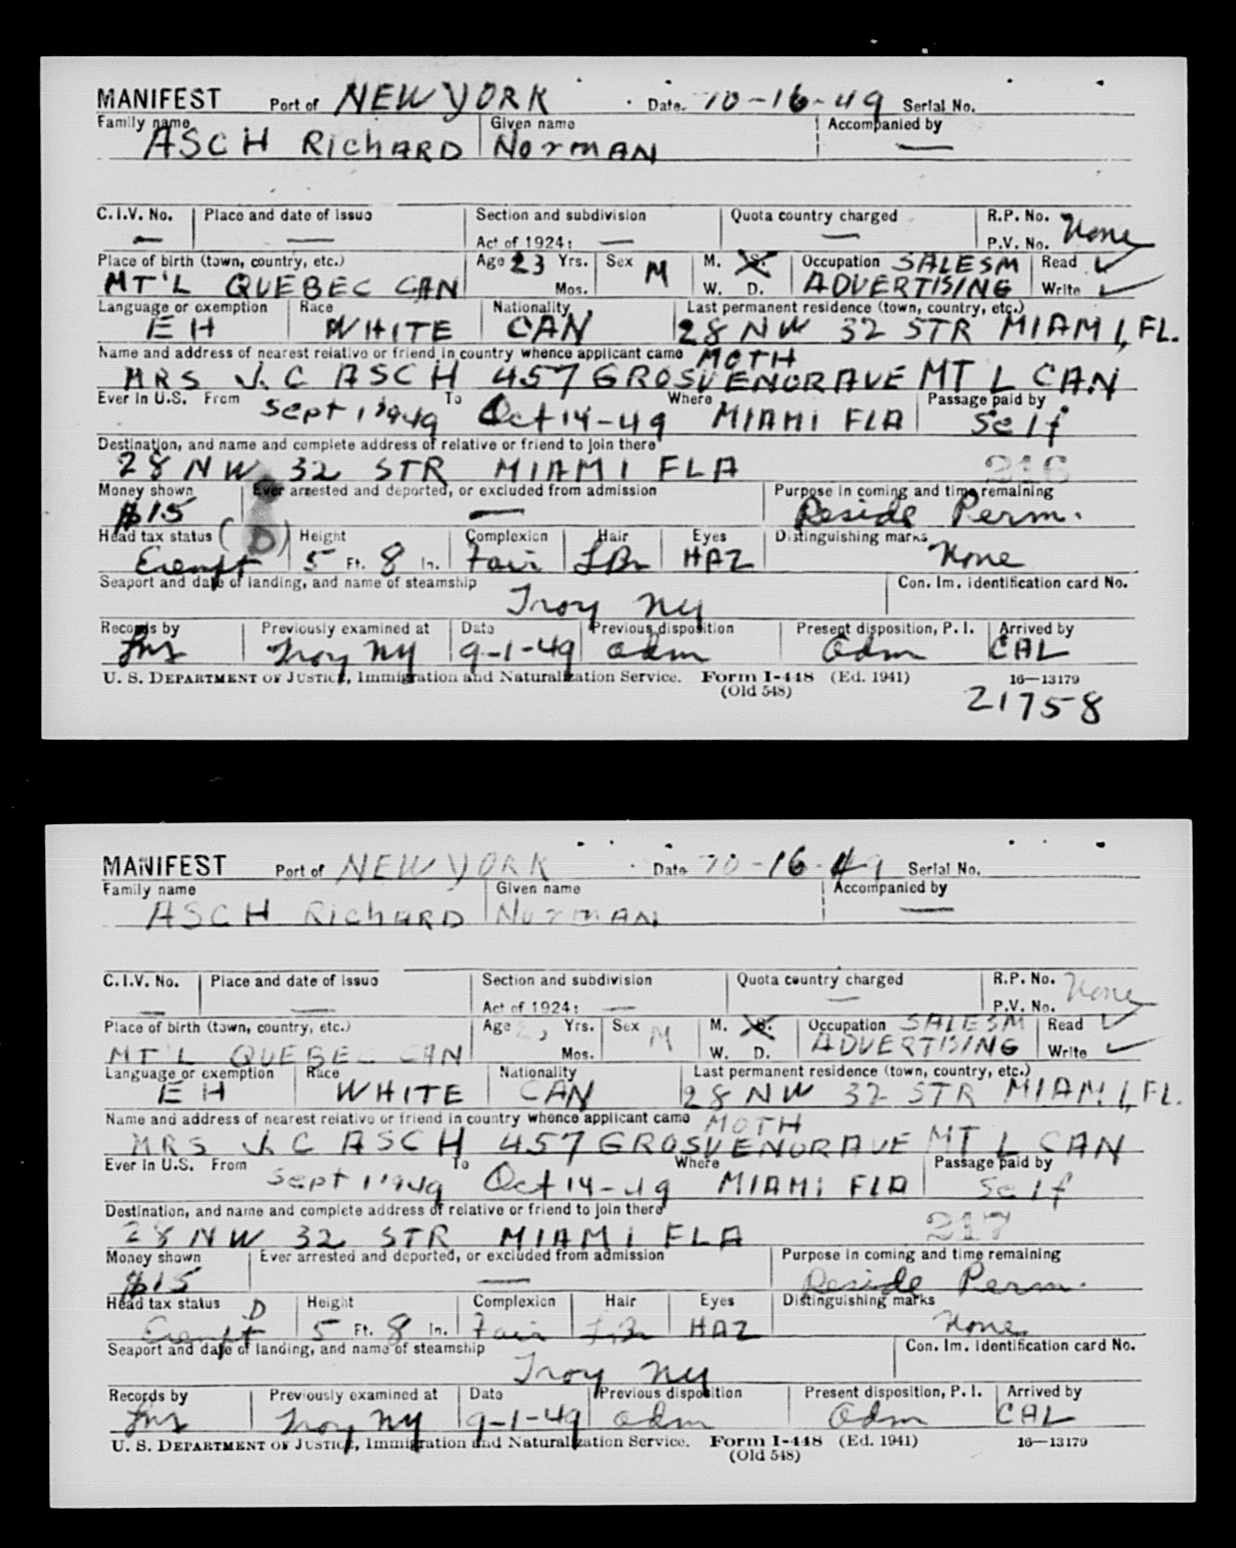 MANIFEST Port of NEW YORK Date 10-16-49 Serial No.
Family name Given name Accompanied by
ASCH RIChARD NormAN —
C.I.V. No. Place and date of issue Section and subdivision Quota country charged R.P. No. None
— — Act of 1924: — — P.V. No.
Place of birth (town, country, etc.) Age 23 Yrs. Sex M M. S. Occupation SALESM Read ✓
MT'L QUEBEC CAN Mos. W. D. ADVERTISING Write ✓
Language or exemption Race Nationality Last permanent residence (town, country, etc.)
E H WHITE CAN 28 NW 32 STR MIAMI, FL.
Name and address of nearest relative or friend in country whence applicant came MOTH
MRS J. C ASCH 457 GROSVENOR AVE MT L CAN
Ever in U.S. From To Where Passage paid by
Sept 1 1949 Oct 14-49 MIAMI FLA Self
Destination, and name and complete address of relative or friend to join there
28 NW 32 STR MIAMI FLA 216
Money shown Ever arrested and deported, or excluded from admission Purpose in coming and time remaining
$15 — Reside Perm.
Head tax status (D) Height Complexion Hair Eyes Distinguishing marks
Exempt 5 Ft. 8 In. Fair LBr HAZ None
Seaport and date of landing, and name of steamship Con. Im. Identification card No.
Troy NY
Records by Previously examined at Date Previous disposition Present disposition, P. I. Arrived by
Troy NY 9-1-49 adm Adm CAL
U. S. DEPARTMENT OF JUSTICE, Immigration and Naturalization Service. Form I-448 (Ed. 1941) 16—13179
(Old 548)
21758
MANIFEST Port of NEW YORK Date 10-16-49 Serial No.
Family name Given name Accompanied by
ASCH RIChARD NormAN —
C.I.V. No. Place and date of issue Section and subdivision Quota country charged R.P. No. None
— — Act of 1924: — — P.V. No.
Place of birth (town, country, etc.) Age 23 Yrs. Sex M M. S. Occupation SALESM Read ✓
MT'L QUEBEC CAN Mos. W. D. ADVERTISING Write ✓
Language or exemption Race Nationality Last permanent residence (town, country, etc.)
E H WHITE CAN 28 NW 32 STR MIAMI, FL.
Name and address of nearest relative or friend in country whence applicant came MOTH
MRS J. C ASCH 457 GROSVENOR AVE MT L CAN
Ever in U.S. From To Where Passage paid by
Sept 1 1949 Oct 14-49 MIAMI FLA Self
Destination, and name and complete address of relative or friend to join there
28 NW 32 STR MIAMI FLA 217
Money shown Ever arrested and deported, or excluded from admission Purpose in coming and time remaining
$15 — Reside Perm.
Head tax status D Height Complexion Hair Eyes Distinguishing marks
Exempt 5 Ft. 8 In. Fair LBr HAZ None
Seaport and date of landing, and name of steamship Con. Im. Identification card No.
Troy NY
Records by Previously examined at Date Previous disposition Present disposition, P. I. Arrived by
Troy NY 9-1-49 adm Adm CAL
U. S. DEPARTMENT OF JUSTICE, Immigration and Naturalization Service. Form I-448 (Ed. 1941) 16—13179
(Old 548)